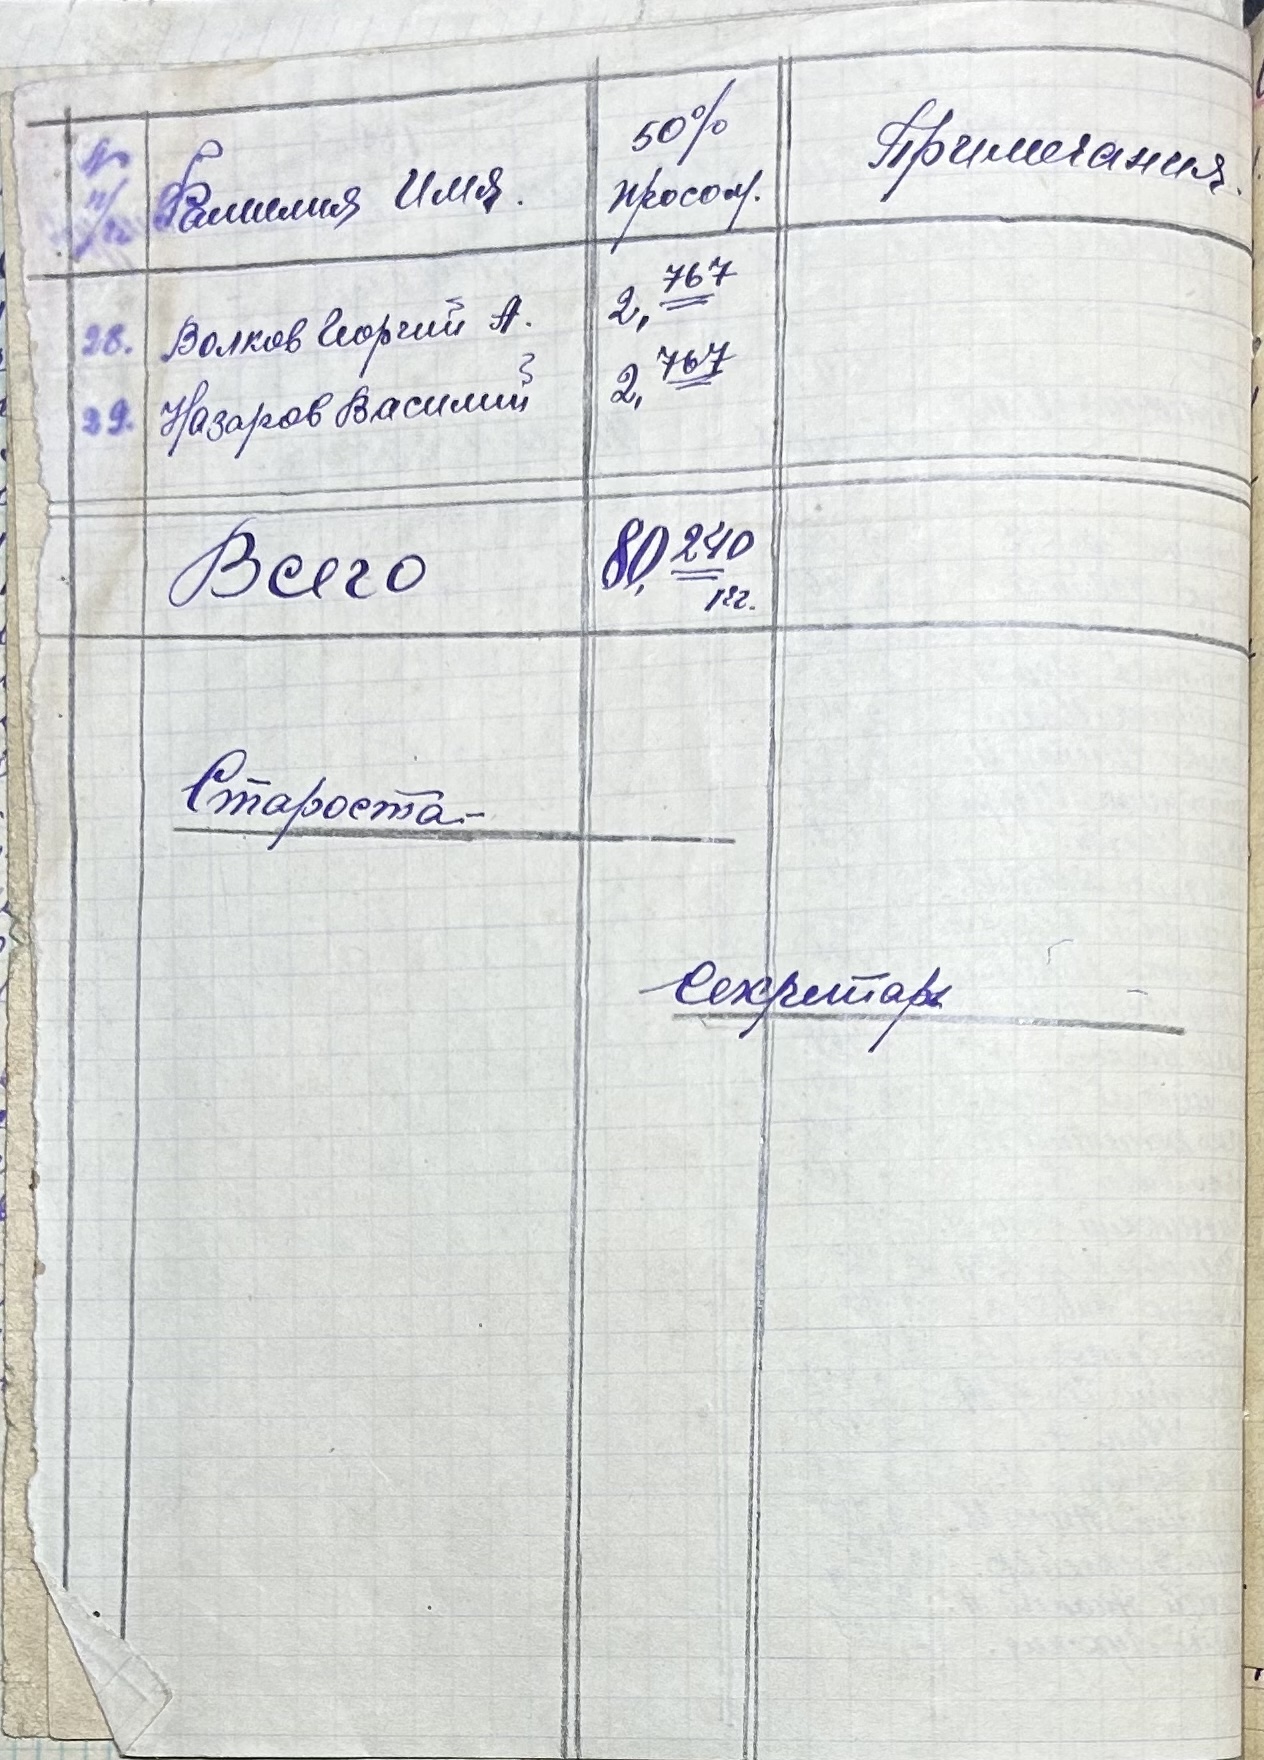 № п/п Фамилия Имя. 50% просом. Примечания.
28. Волков Георгий А. 2,767
29. Назаров Василий 2,767
Всего 80,240 кг.
Староста-
Секретарь -